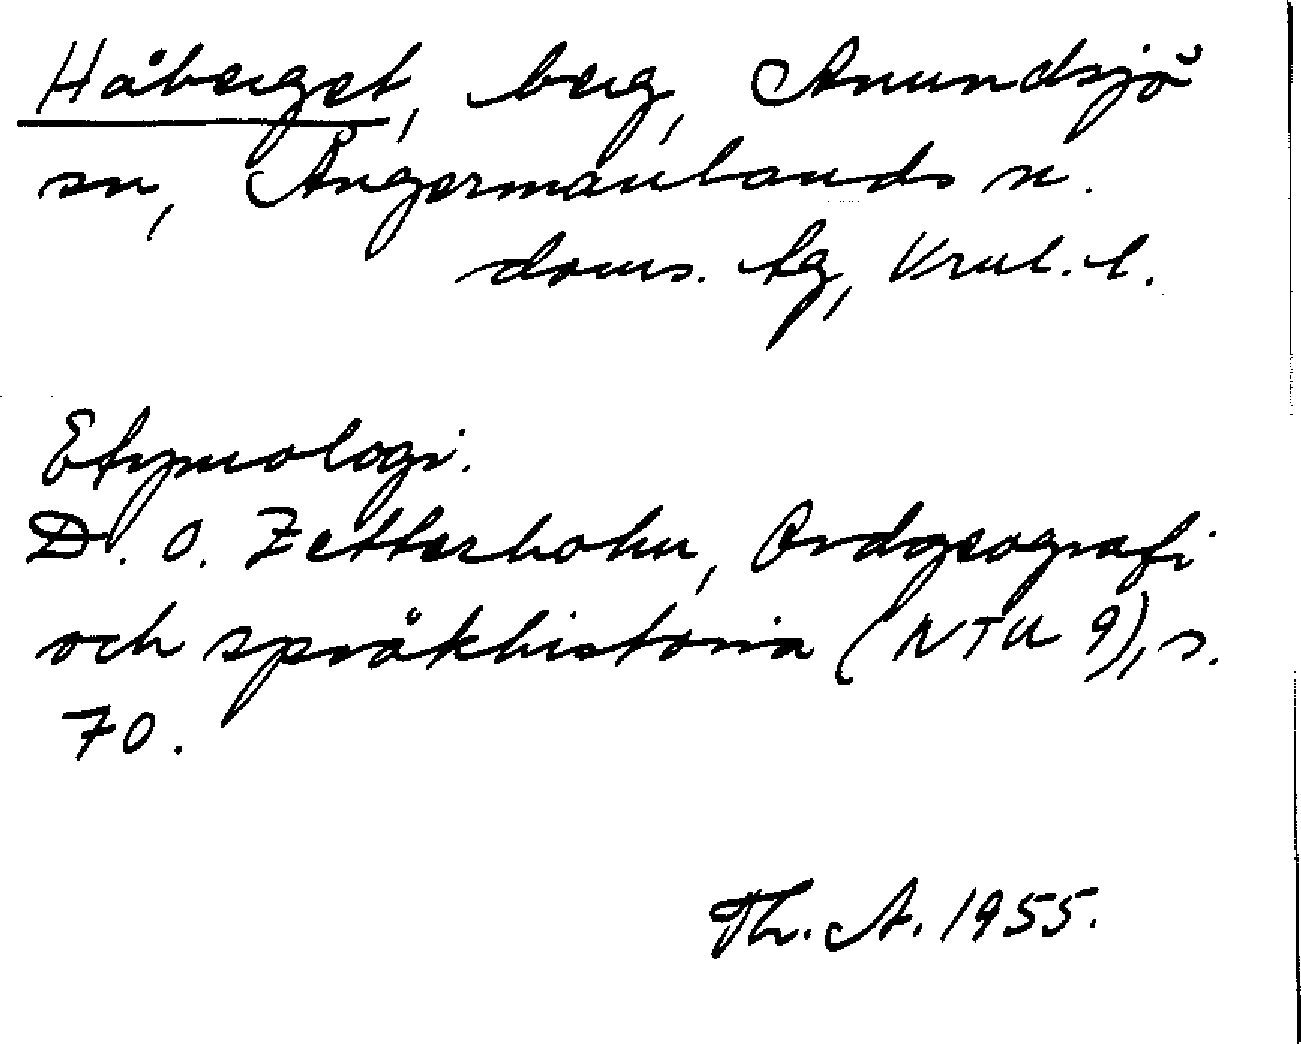 Håberget, berg, Anundsjö
sn, Ångermanlands n.
doms. tg, Vrnl. l.
Etymologi.
D. O. Zetterholm, Ordgeografi
och språkhistoria (NTU 9), s.
70.
Th. A. 1955.